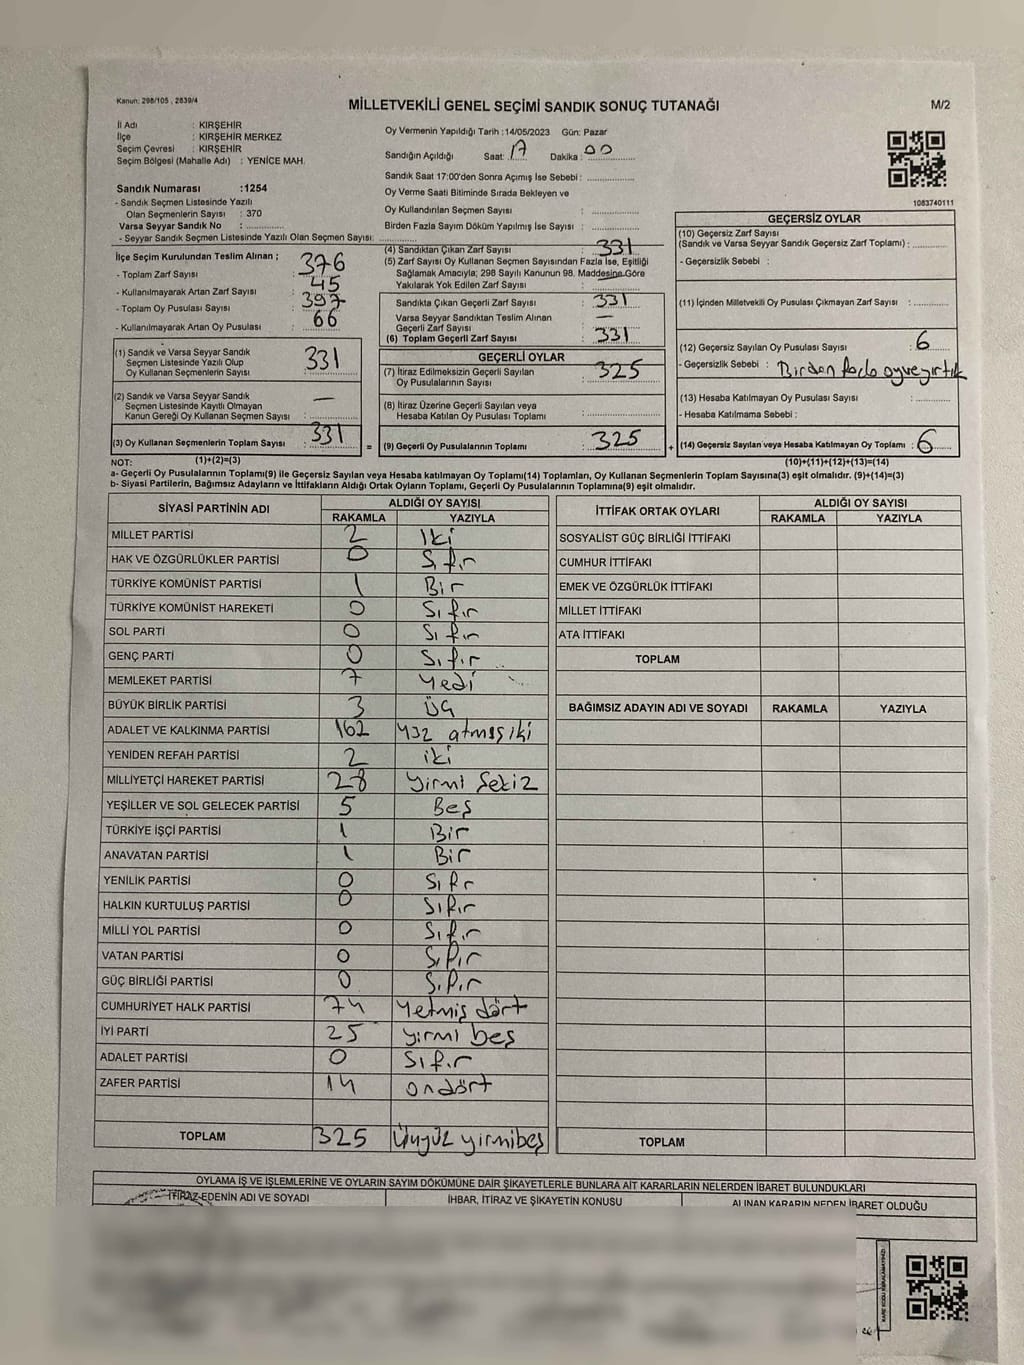 Kanun: 298/105 , 2839/4
MİLLETVEKİLİ GENEL SEÇİMİ SANDIK SONUÇ TUTANAĞI
M/2
İl Adı : KIRŞEHİR
İlçe : KIRŞEHİR MERKEZ
Seçim Çevresi : KIRŞEHİR
Seçim Bölgesi (Mahalle Adı) : YENİCE MAH.
Oy Vermenin Yapıldığı Tarih :14/05/2023 Gün: Pazar
Sandığın Açıldığı Saat: 17 Dakika : 00
Sandık Saat 17:00'den Sonra Açımış İse Sebebi :
Oy Verme Saati Bitiminde Sırada Bekleyen ve
Oy Kullandırılan Seçmen Sayısı :
Birden Fazla Sayım Döküm Yapılmış İse Sayısı :
1083740111
Sandık Numarası :1254
- Sandık Seçmen Listesinde Yazılı
Olan Seçmenlerin Sayısı : 370
Varsa Seyyar Sandık No :
- Seyyar Sandık Seçmen Listesinde Yazılı Olan Seçmen Sayısı:
İlçe Seçim Kurulundan Teslim Alınan ;
- Toplam Zarf Sayısı : 376
- Kullanılmayarak Artan Zarf Sayısı : 45
- Toplam Oy Pusulası Sayısı : 397
- Kullanılmayarak Artan Oy Pusulası : 66
(1) Sandık ve Varsa Seyyar Sandık
Seçmen Listesinde Yazılı Olup
Oy Kullanan Seçmenlerin Sayısı : 331
(2) Sandık ve Varsa Seyyar Sandık
Seçmen Listesinde Kayıtlı Olmayan
Kanun Gereği Oy Kullanan Seçmen Sayısı : —
(3) Oy Kullanan Seçmenlerin Toplam Sayısı : 331
(4) Sandıktan Çıkan Zarf Sayısı : 331
(5) Zarf Sayısı Oy Kullanan Seçmen Sayısından Fazla İse, Eşitliği
Sağlamak Amacıyla; 298 Sayılı Kanunun 98. Maddesine Göre
Yakılarak Yok Edilen Zarf Sayısı :
Sandıkta Çıkan Geçerli Zarf Sayısı : 331
Varsa Seyyar Sandıktan Teslim Alınan
Geçerli Zarf Sayısı : —
(6) Toplam Geçerli Zarf Sayısı : 331
GEÇERLİ OYLAR
(7) İtiraz Edilmeksizin Geçerli Sayılan
Oy Pusulalarının Sayısı : 325
(8) İtiraz Üzerine Geçerli Sayılan veya
Hesaba Katılan Oy Pusulası Toplamı :
= (9) Geçerli Oy Pusulalarının Toplamı : 325
GEÇERSİZ OYLAR
(10) Geçersiz Zarf Sayısı
(Sandık ve Varsa Seyyar Sandık Geçersiz Zarf Toplamı) :
- Geçersizlik Sebebi :
(11) İçinden Milletvekili Oy Pusulası Çıkmayan Zarf Sayısı :
(12) Geçersiz Sayılan Oy Pusulası Sayısı : 6
- Geçersizlik Sebebi : Birden fazla oy ve yırtık
(13) Hesaba Katılmayan Oy Pusulası Sayısı :
- Hesaba Katılmama Sebebi :
+ (14) Geçersiz Sayılan veya Hesaba Katılmayan Oy Toplamı : 6
NOT: (1)+(2)=(3) (10)+(11)+(12)+(13)=(14)
a- Geçerli Oy Pusulalarının Toplamı(9) ile Geçersiz Sayılan veya Hesaba katılmayan Oy Toplamı(14) Toplamları, Oy Kullanan Seçmenlerin Toplam Sayısına(3) eşit olmalıdır. (9)+(14)=(3)
b- Siyasi Partilerin, Bağımsız Adayların ve İttifakların Aldığı Ortak Oyların Toplamı, Geçerli Oy Pusulalarının Toplamına(9) eşit olmalıdır.
SİYASİ PARTİNİN ADI ALDIĞI OY SAYISI
RAKAMLA YAZIYLA
MİLLET PARTİSİ 2 İki
HAK VE ÖZGÜRLÜKLER PARTİSİ 0 Sıfır
TÜRKİYE KOMÜNİST PARTİSİ 1 Bir
TÜRKİYE KOMÜNİST HAREKETİ 0 Sıfır
SOL PARTİ 0 Sıfır
GENÇ PARTİ 0 Sıfır
MEMLEKET PARTİSİ 7 Yedi
BÜYÜK BİRLİK PARTİSİ 3 Üç
ADALET VE KALKINMA PARTİSİ 162 Yüz atmış iki
YENİDEN REFAH PARTİSİ 2 iki
MİLLİYETÇİ HAREKET PARTİSİ 28 Yirmi Sekiz
YEŞİLLER VE SOL GELECEK PARTİSİ 5 Beş
TÜRKİYE İŞÇİ PARTİSİ 1 Bir
ANAVATAN PARTİSİ 1 Bir
YENİLİK PARTİSİ 0 Sıfr
HALKIN KURTULUŞ PARTİSİ 0 Sıfır
MİLLİ YOL PARTİSİ 0 Sıfır
VATAN PARTİSİ 0 Sıfır
GÜÇ BİRLİĞİ PARTİSİ 0 Sıfır
CUMHURİYET HALK PARTİSİ 74 Yetmiş dört
İYİ PARTİ 25 yirmi beş
ADALET PARTİSİ 0 Sıfır
ZAFER PARTİSİ 14 ondört
TOPLAM 325 Üçyüz yirmibeş
İTTİFAK ORTAK OYLARI ALDIĞI OY SAYISI
RAKAMLA YAZIYLA
SOSYALİST GÜÇ BİRLİĞİ İTTİFAKI
CUMHUR İTTİFAKI
EMEK VE ÖZGÜRLÜK İTTİFAKI
MİLLET İTTİFAKI
ATA İTTİFAKI
TOPLAM
BAĞIMSIZ ADAYIN ADI VE SOYADI RAKAMLA YAZIYLA
TOPLAM
OYLAMA İŞ VE İŞLEMLERİNE VE OYLARIN SAYIM DÖKÜMÜNE DAİR ŞİKAYETLERLE BUNLARA AİT KARARLARIN NELERDEN İBARET BULUNDUKLARI
İTİRAZ EDENİN ADI VE SOYADI İHBAR, İTİRAZ VE ŞİKAYETİN KONUSU ALINAN KARARIN NEDEN İBARET OLDUĞU